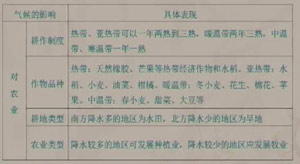 气候的影响 具体表现
对农业
耕作制度
热带、亚热带可以一年两熟到三熟，暖温带两年三熟，中温
带、寒温带一年一熟
作物品种
热带：天然橡胶、芒果等热带经济作物和水稻。亚热带：水
稻、小麦、油菜、柑橘。暖温带：冬小麦、花生、棉花、苹
果。中温带：春小麦、甜菜、大豆等
耕地类型
南方降水多的地区为水田，北方降水少的地区为旱地
农业类型
降水较多的地区可发展种植业，降水较少的地区应发展牧业